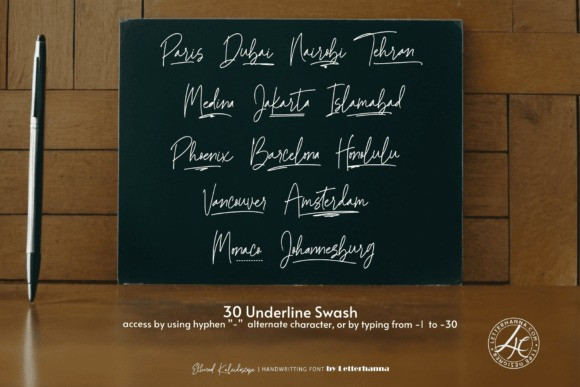 Paris Dubai Nairobi Tehran
Medina Jakarta Islamabad
Phoenix Barcelona Honolulu
Vancouver Amsterdam
Monaco Johannesburg
30 Underline Swash
access by using hyphen "-" alternate character, or by typing from -1 to -30
Kaleidoscope | HANDWRITTING FONT by Letterhanna
LETTERHANNA.COM
TYPE DESIGNER